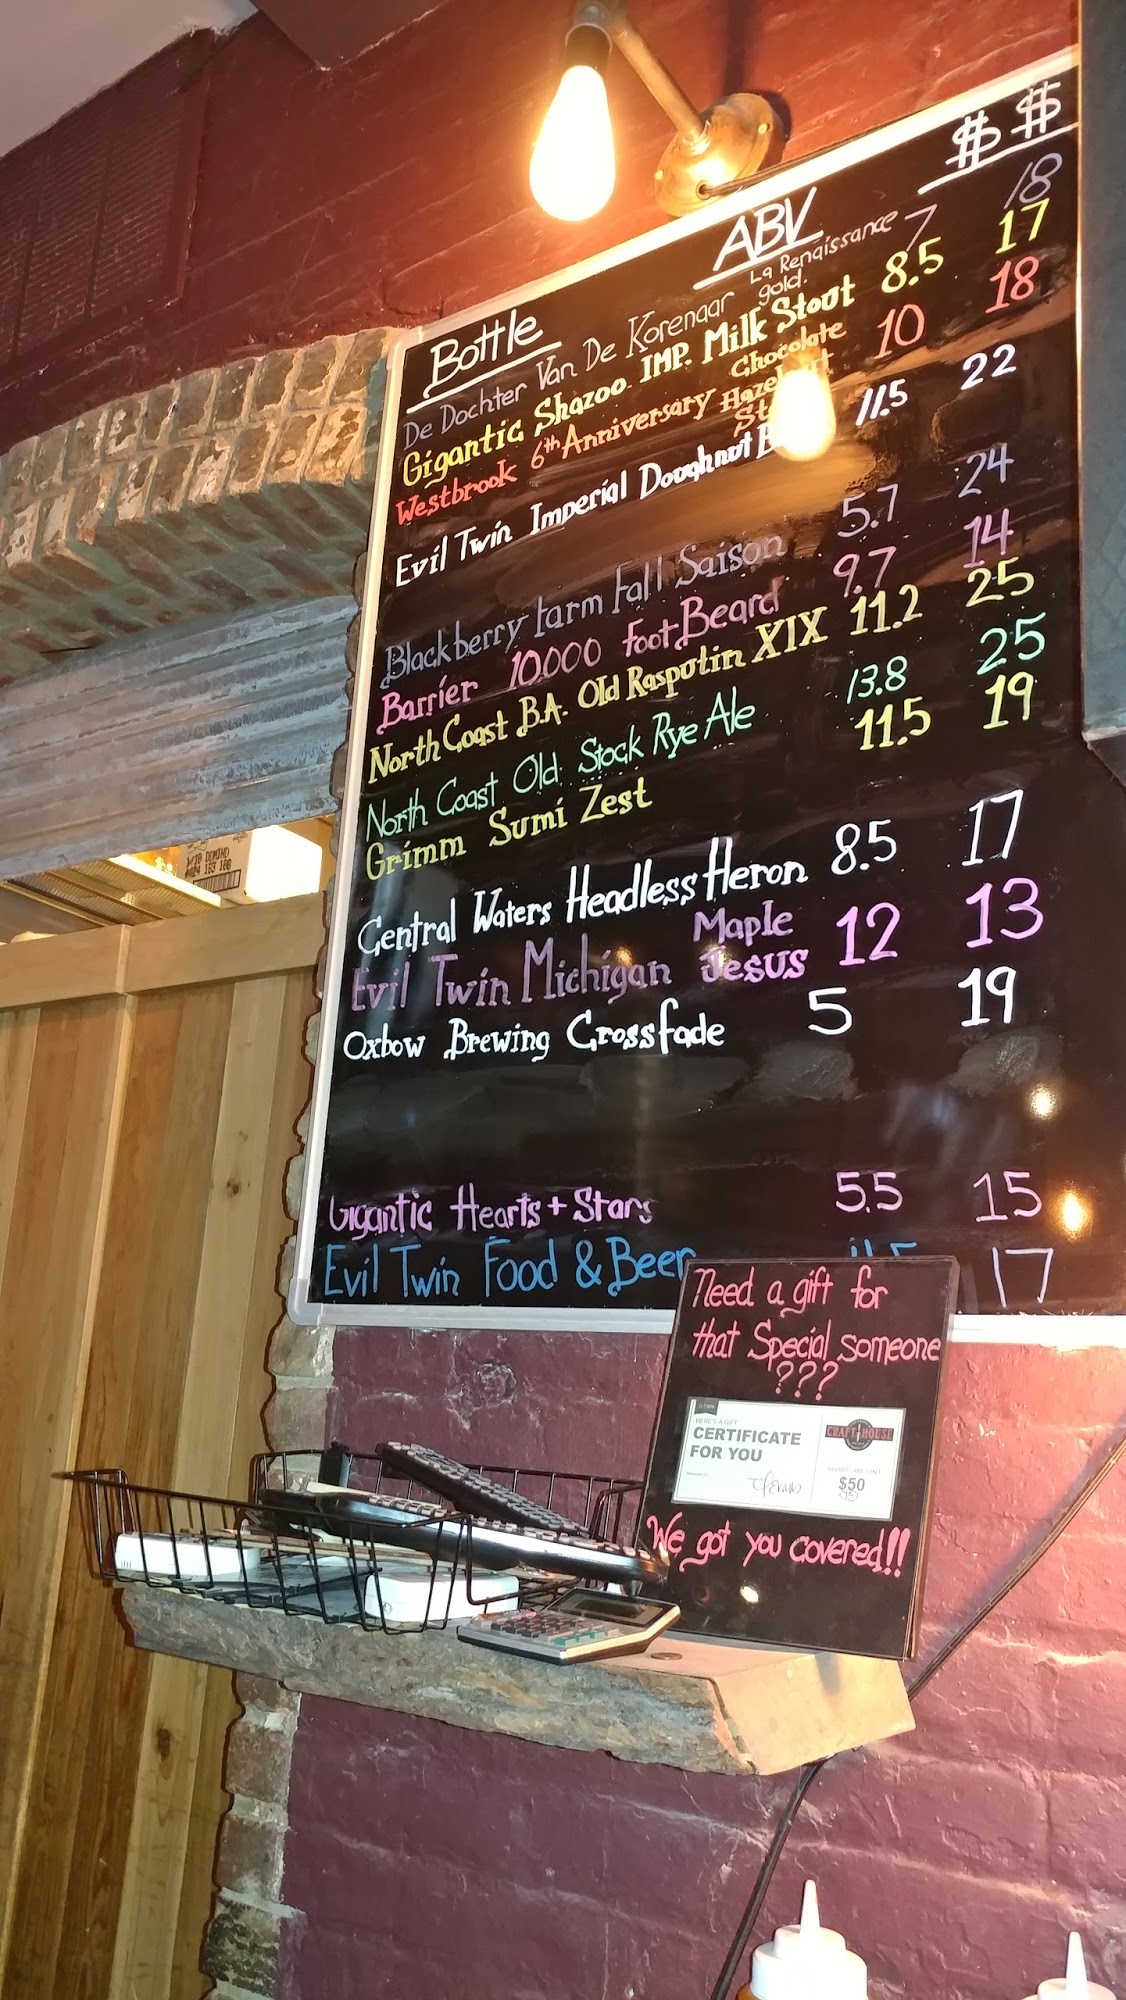 Bottle ABV $$
De Dochter Van De Korenaar La Renaissance gold. 7 18
Gigantic Shazoo IMP. Milk Stout 8.5 17
Westbrook 6th Anniversary Chocolate Hazelnut 10 18
Evil Twin Imperial Doughnut 11.5 22
Blackberry farm Fall Saison 5.7 24
Barrier 10,000 foot Beard 9.7 14
North Coast B.A. Old Rasputin XIX 11.2 25
North Coast Old Stock Rye Ale 13.8 25
Grimm Sumi Zest 11.5 19
Central Waters Headless Heron 8.5 17
Evil Twin Michigan Maple Jesus 12 13
Oxbow Brewing Crossfade 5 19
Gigantic Hearts + Stars 5.5 15
Evil Twin Food & Beer 17
Need a gift for
that Special someone
???
HERE'S A GIFT
CERTIFICATE
FOR YOU
CRAFT HOUSE
$50
We got you covered!!